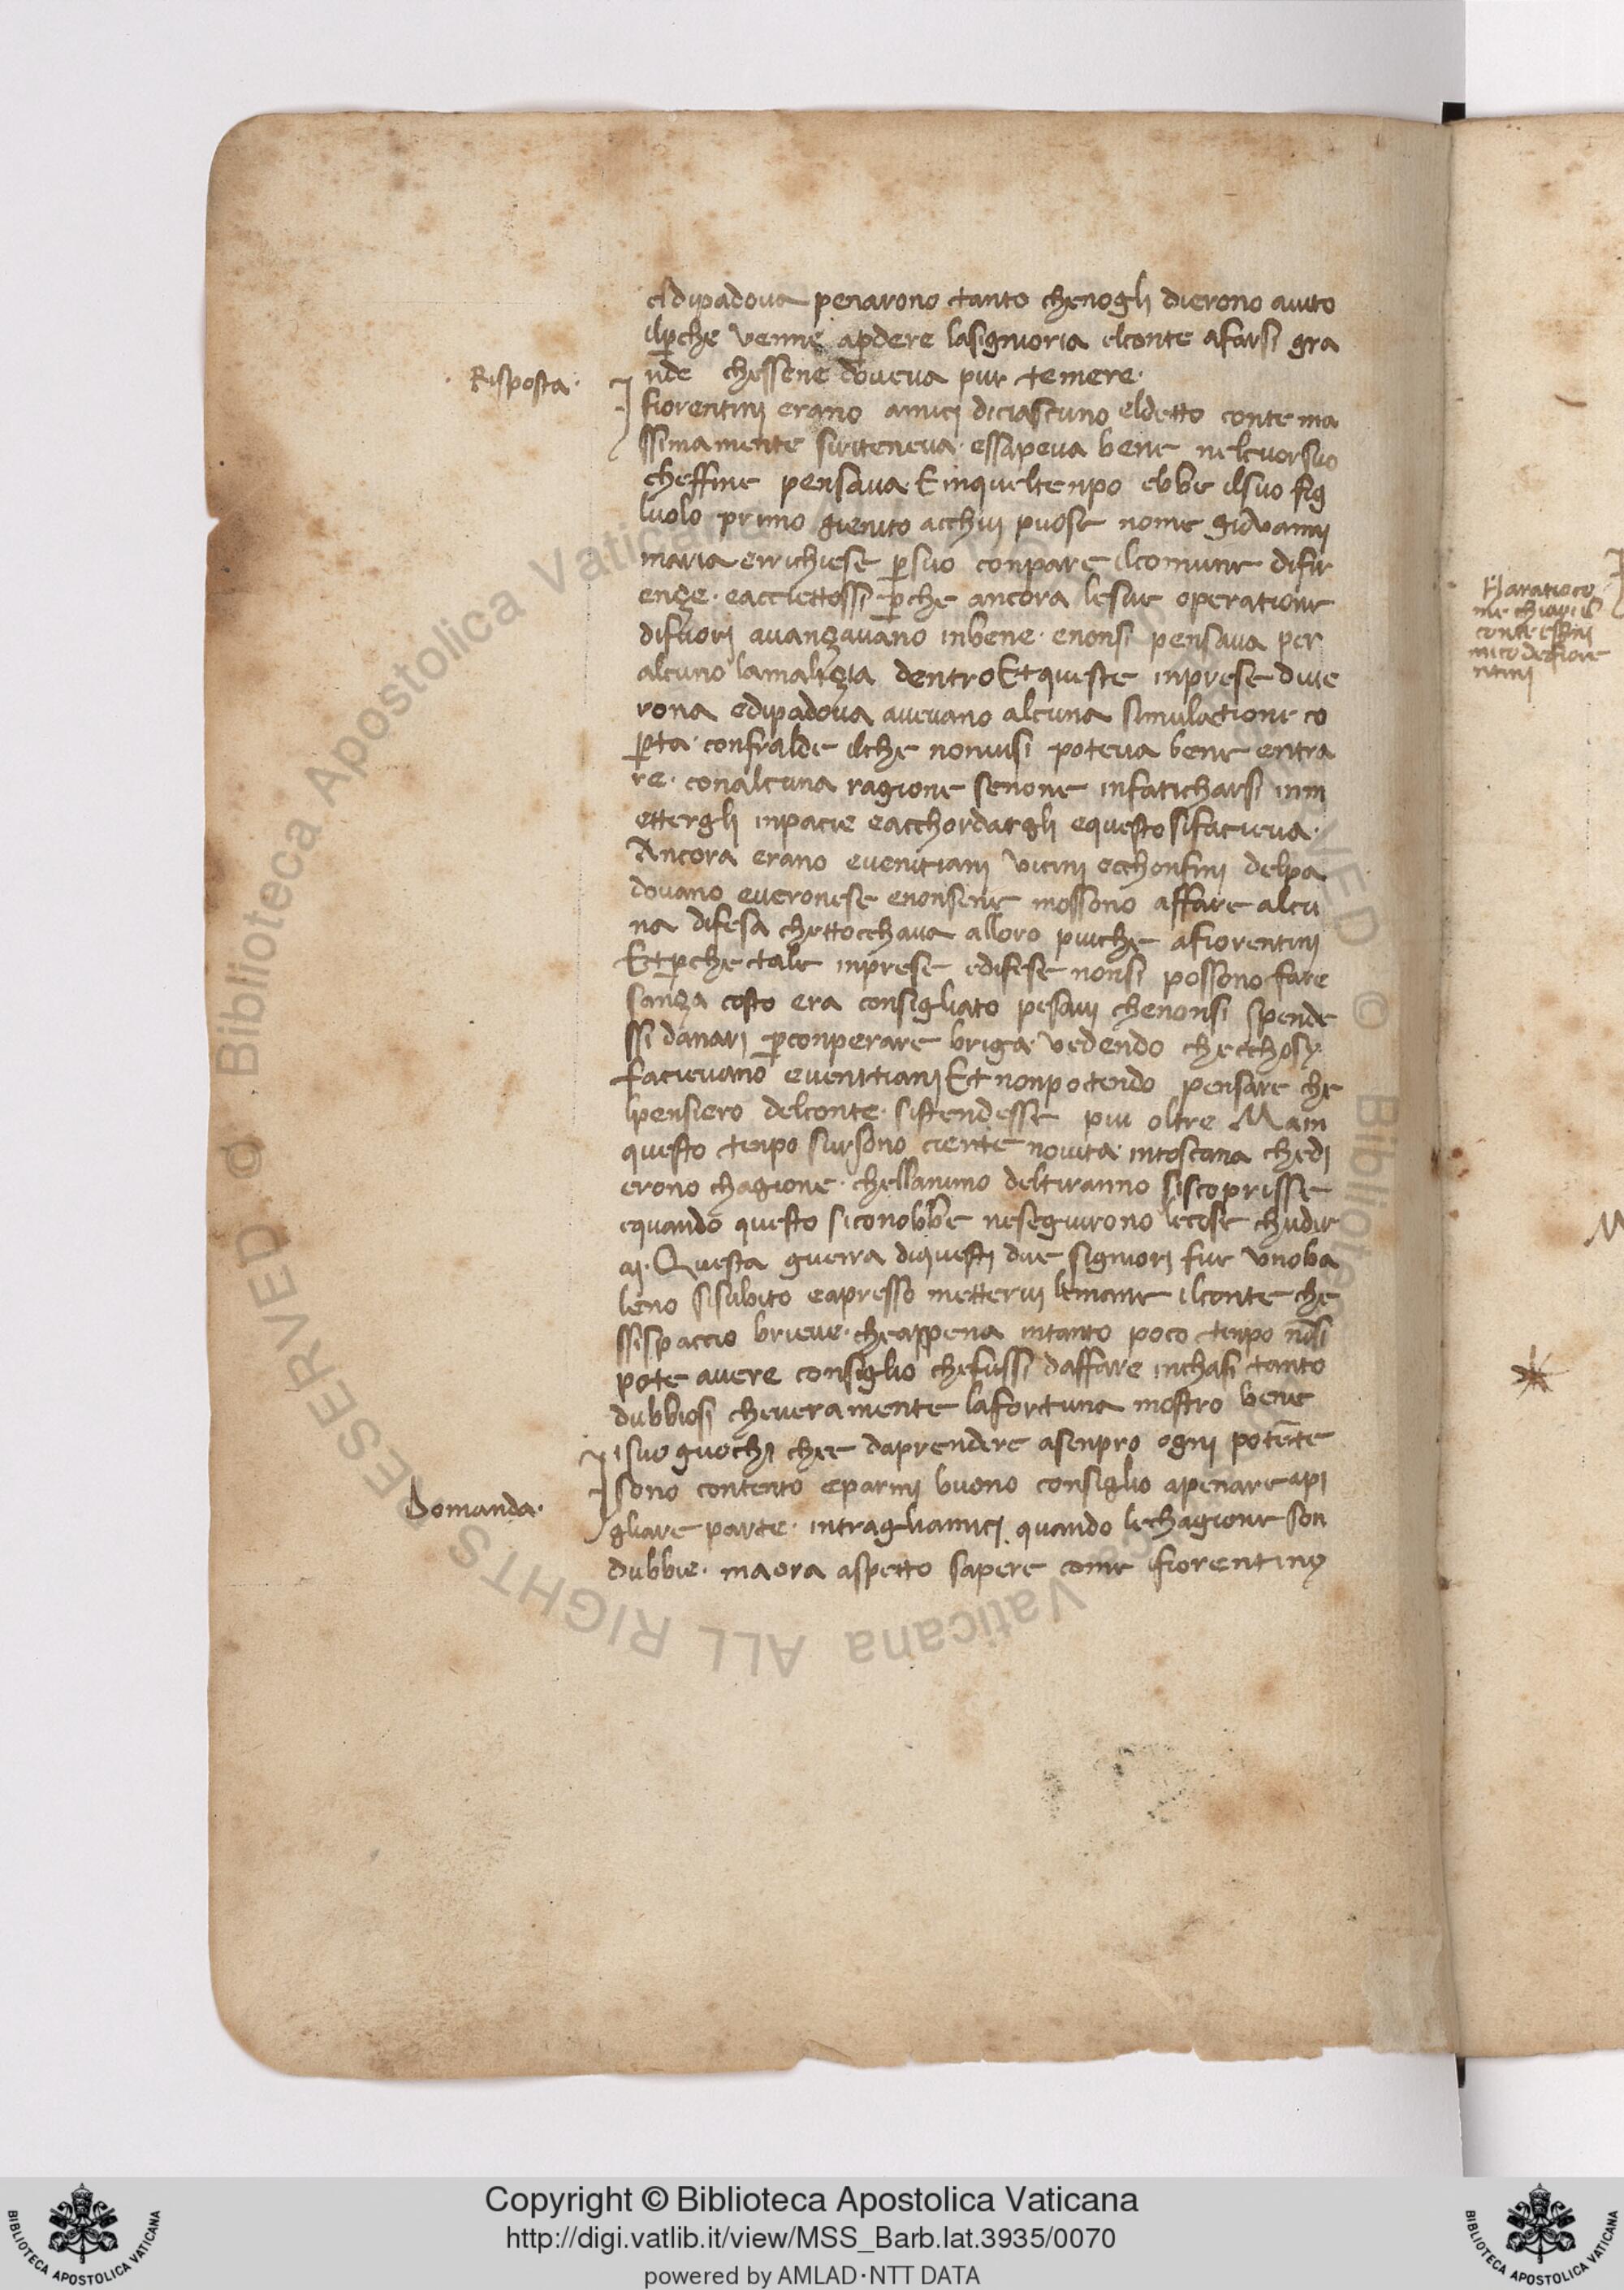 eldipadova penarono tanto chenogli dierono aiuto
ilp̱che venne ap̱dere lasignioria elconte afarsi gra
nde chessene doveva pur temere·
· Risposta ·
fiorentini erano amici diciascuno eldetto conte ma
ssimamente siriteneva· essapeva bene nelcuorsuo
cheffine pensava· Einqueltenpo ebbe ilsuo fig
luolo primo gienito acchui puose nome giovanni
maria errichiese p̱suo conpare ilcomune difir
enze· eacciettossi p̱che ancora lesue operatione
difuori avanzavano inbene· enonsi pensava per
alcuno lamalizia dentro Et queste inprese diue
rona edipadova avevano alcuna simulatione co
p̱ta· confralde ilche nonuisi poteva bene entra
re· conalcuna ragione senone infaticharsi inm
ettergli inpacie eacchordargli equesto sifacieva·
Ancora erano evenitiani vicini ecchonfini delpa
dovano everonese enonsene mossono affare alcu
na difesa chettocchava alloro piuche afiorentini
Et p̱che tale inprese edifese nonsi possono fare
sanza costo era consigliato pesavi chenonsi spende
ssi danari p̱conperare briga· vedendo checchosy
facievano evenitiani Et nonpotendo pensare che
lpensiero delconte· sistendesse piu oltre Ma in
questo tenpo sursono cierte novita· intoscana chedi
erono chagione· chellanimo deltiranno siscoprisse
equando questo siconobbe neseguirono lecose chudir
ai· Questa guerra diquesti due signiori fue unoba
leno sisubito eapresso mettervi lemane ilconte che
ssispaccio brieve· cheappena intanto poco tenpo nōsi
pote avere consiglio chefussi daffare inchasi tanto
dubbiosi cheveramente lafortuna mostro bene
isuo guochi chee daprendere asenpro ogni potēte
Domanda·
sono contento eparmi buono consiglio apenare api
gliare parte· intragliamici quando lechagione son
dubbie· maora aspetto sapere come ifiorentiny
conte essini
mico defiore
ntini
© Biblioteca Apostolica Vaticana ALL RIGHTS RESERVED
Copyright © Biblioteca Apostolica Vaticana
http://digi.vatlib.it/view/MSS_Barb.lat.3935/0070
powered by AMLAD·NTT DATA
BIBLIOTECA APOSTOLICA VATICANA
BIBLIOTECA APOSTOLICA VATICANA